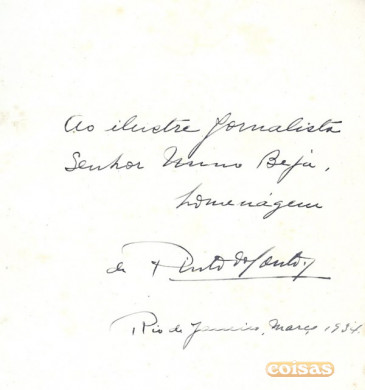 Ao ilustre Jornalista
Senhor Nuno Beja,
homenágem
de Pinto do Couto
Rio de Janeiro, Março 1934.
coisas